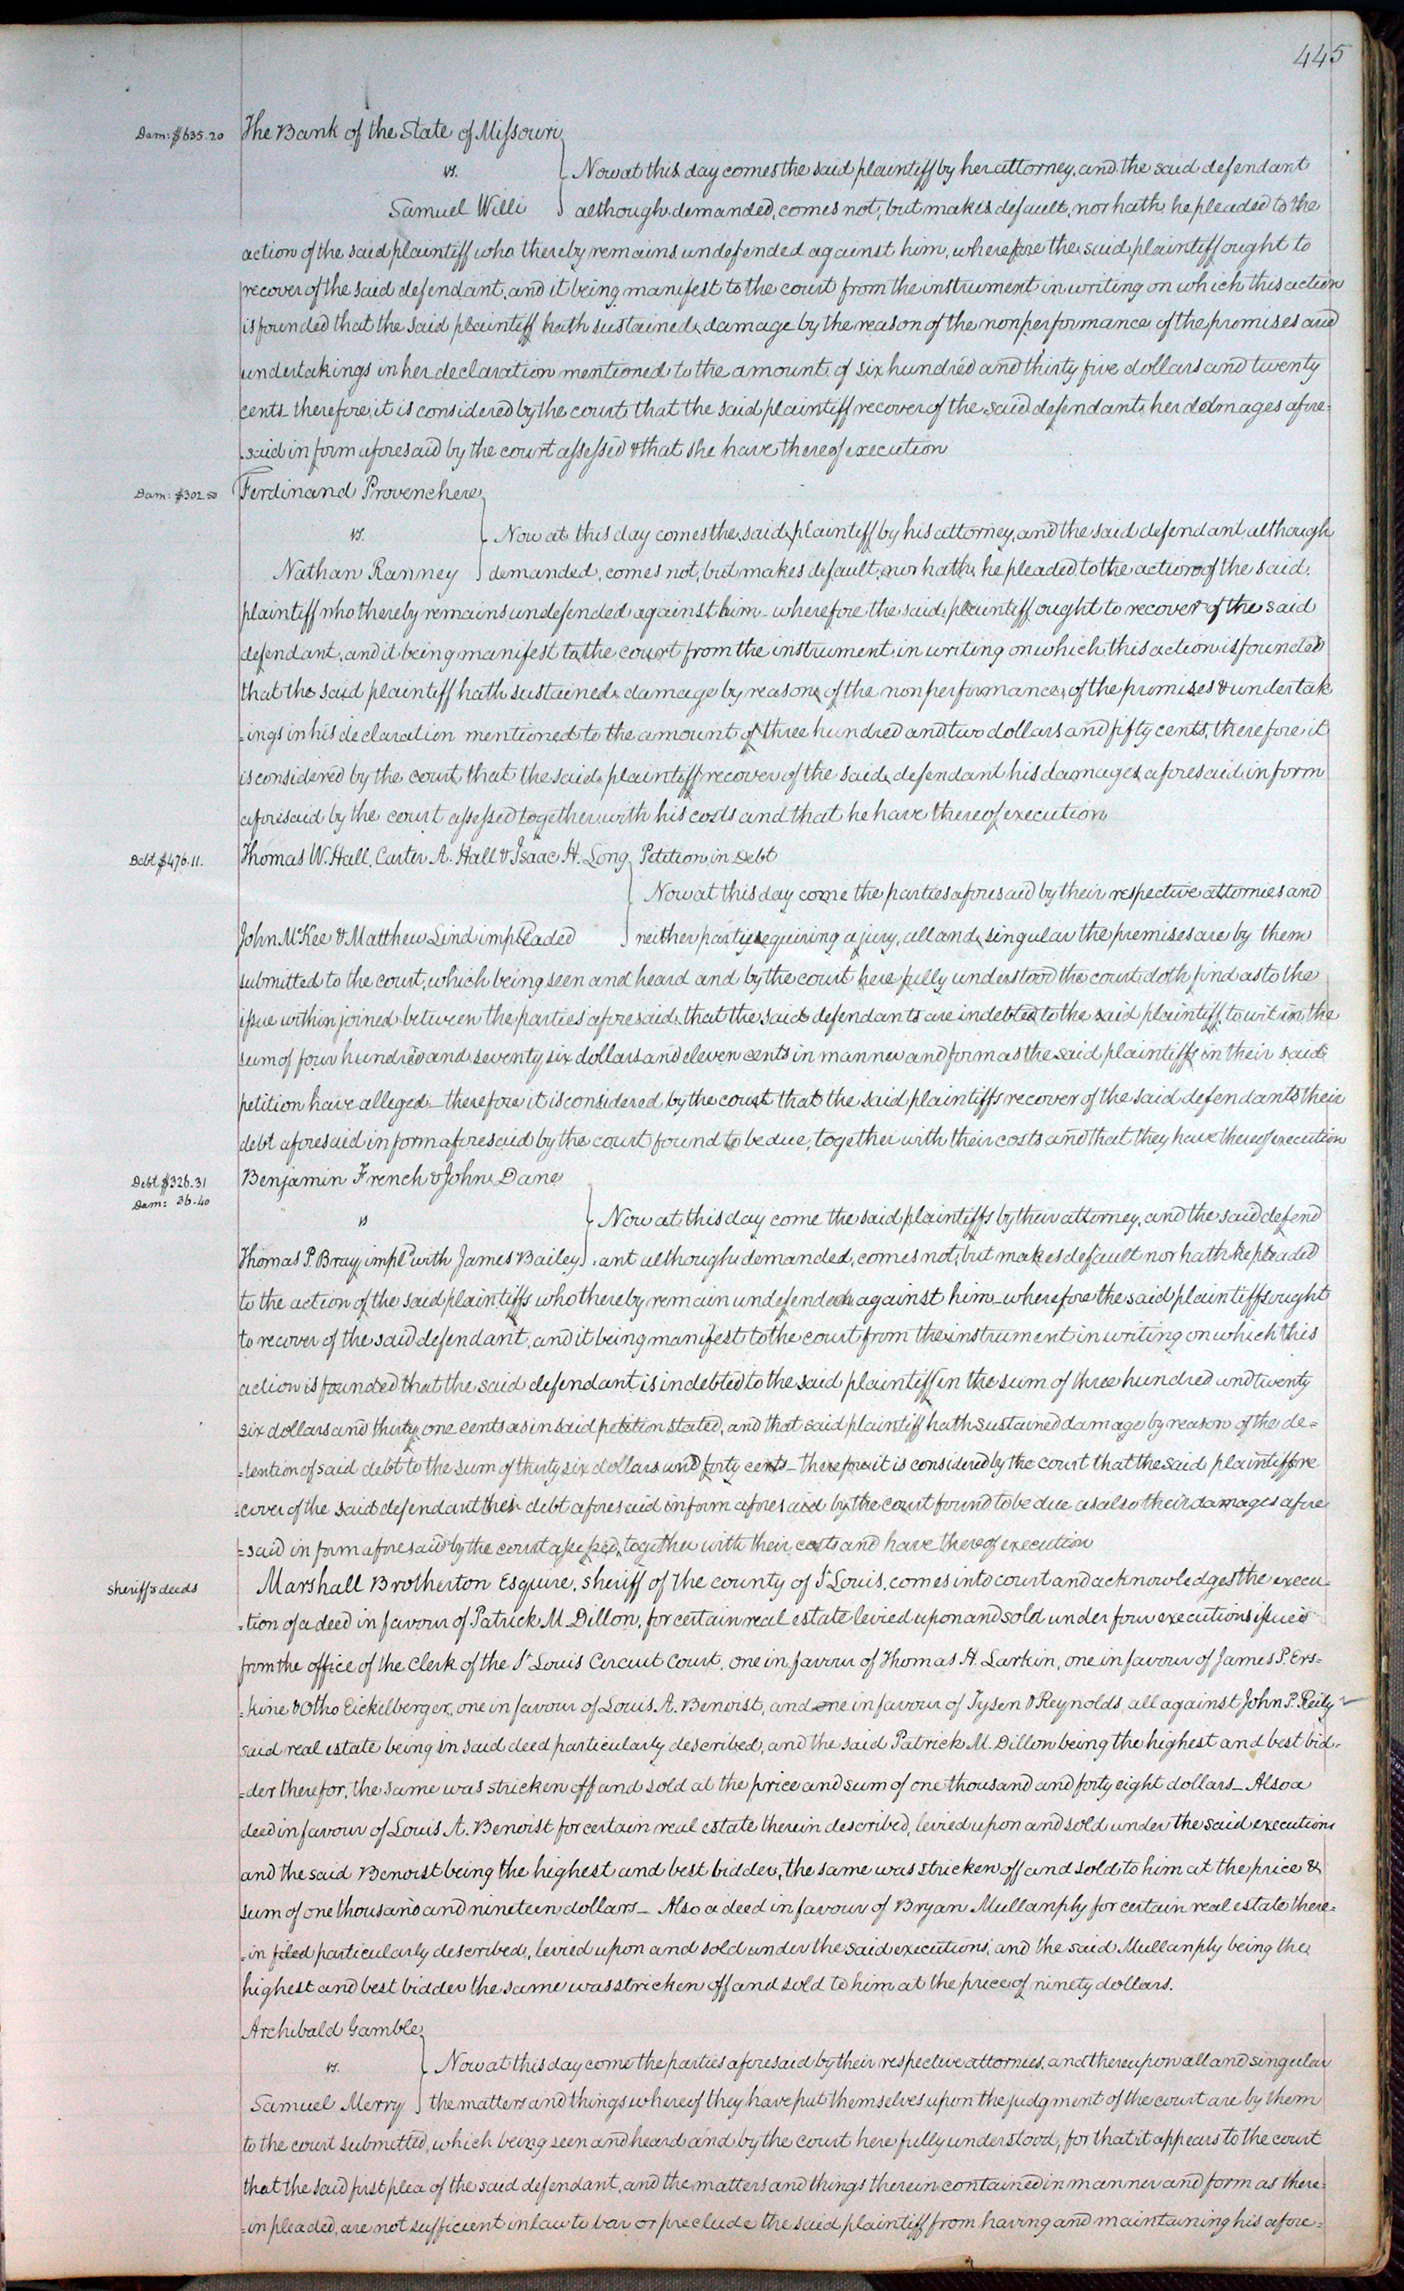 445
Dam: $635.20 The Bank of the State of Missouri
vs. Now at this day comes the said plaintiff by her attorney, and the said defendant
Samuel Willi although demanded, comes not, but makes default, nor hath he pleaded to the
action of the said plaintiff who thereby remains undefended against him, wherefore the said plaintiff ought to
recover of the said defendant, and it being manifest to the court from the instrument in writing on which this action
is founded that the said plaintiff hath sustained damage by the reason of the nonperformance of the promises and
undertakings in her declaration mentioned to the amount of six hundred and thirty five dollars and twenty
cents therefore it is considered by the court that the said plaintiff recover of the said defendant her damages afore-
said in form aforesaid by the court assessed & that she have thereof execution
Dam: $302.50 Ferdinand Provenchere
vs. Now at this day comes the said plaintiff by his attorney, and the said defendant although
Nathan Ranney demanded, comes not, but makes default, nor hath he pleaded to the action of the said
plaintiff who thereby remains undefended against him - wherefore the said plaintiff ought to recover of the said
defendant, and it being manifest to the court from the instrument in writing on which this action is founded
that the said plaintiff hath sustained damage by reason of the nonperformance of the promises & undertak
-ings in his declaration mentioned to the amount of three hundred and two dollars and fifty cents, therefore it
is considered by the court that the said plaintiff recover of the said defendant his damages aforesaid in form
aforesaid by the court assessed together with his costs and that he have thereof execution
Debt $476.11. Thomas W. Hall, Carter A. Hall & Isaac H. Long Petition in Debt
Now at this day come the parties aforesaid by their respective attornies and
John McKee & Matthew Lind impleaded neither party requiring a jury, all and singular the premises are by them
submitted to the court, which being seen and heard and by the court here fully understood the court doth find as to the
issue within joined between the parties aforesaid that the said defendants are indebted to the said plaintiff to wit in the
sum of four hundred and seventy six dollars and eleven cents in manner and form as the said plaintiffs in their said
petition have alleged - therefore it is considered by the court that the said plaintiffs recover of the said defendants their
debt aforesaid in form aforesaid by the court found to be due, together with their costs and that they have thereof execution
Debt $326.31 Benjamin French & John Dane
Dam: 36.40
vs Now at this day come the said plaintiffs by their attorney, and the said defend
Thomas P. Bray impl'd with James Bailey -ant although demanded, comes not, but makes default nor hath he pleaded
to the action of the said plaintiffs who thereby remain undefended against him - wherefore the said plaintiffs ought
to recover of the said defendant, and it being manifest to the court from the instrument in writing on which this
action is founded that the said defendant is indebted to the said plaintiff in the sum of three hundred and twenty
six dollars and thirty one cents as in said petition stated, and that said plaintiff hath sustained damage by reason of the de=
=tention of said debt to the sum of thirty six dollars and forty cents - therefore it is considered by the court that the said plaintiffs re
=cover of the said defendant their debt aforesaid in form aforesaid by the court found to be due as also their damages afore
=said in form aforesaid by the court assessed, together with their costs and have thereof execution
Sheriff's deeds Marshall Brotherton Esquire, sheriff of the county of St Louis, comes into court and acknowledges the execu-
-tion of a deed in favour of Patrick M. Dillon, for certain real estate levied upon and sold under four executions issued
from the office of the Clerk of the St Louis Circuit Court, one in favour of Thomas H. Larkin, one in favour of James P. Ers=
-kine & Otho Eickelberger, one in favour of Louis A. Benoist, and one in favour of Tysen & Reynolds, all against John P. Reily
said real estate being in said deed particularly described, and the said Patrick M. Dillon being the highest and best bid-
-der therefor, the same was stricken off and sold at the price and sum of one thousand and forty eight dollars - Also a
deed in favour of Louis A. Benoist for certain real estate therein described, levied upon and sold under the said executions
and the said Benoist being the highest and best bidder, the same was stricken off and sold to him at the price &
sum of one thousand and nineteen dollars - Also a deed in favour of Bryan Mullanphy for certain real estate there=
-in particularly described, levied upon and sold under the said executions, and the said Mullanphy being the
highest and best bidder the same was stricken off and sold to him at the price of ninety dollars.
Archibald Gamble
vs. Now at this day come the parties aforesaid by their respective attornies, and thereupon all and singular
Samuel Merry the matters and things whereof they have put themselves upon the judgment of the court are by them
to the court submitted, which being seen and heard and by the court here fully understood, for that it appears to the court
that the said first plea of the said defendant, and the matters and things therein contained in manner and form as there=
-in pleaded, are not sufficient in law to bar or preclude the said plaintiff from having and maintaining his afore=